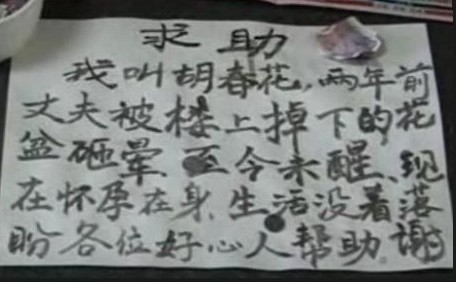 求助
我叫胡春花,两年前
丈夫被楼上掉下的花
盆砸晕、至今未醒、现
在怀孕在身、生活没着落
盼各位好心人帮助。谢